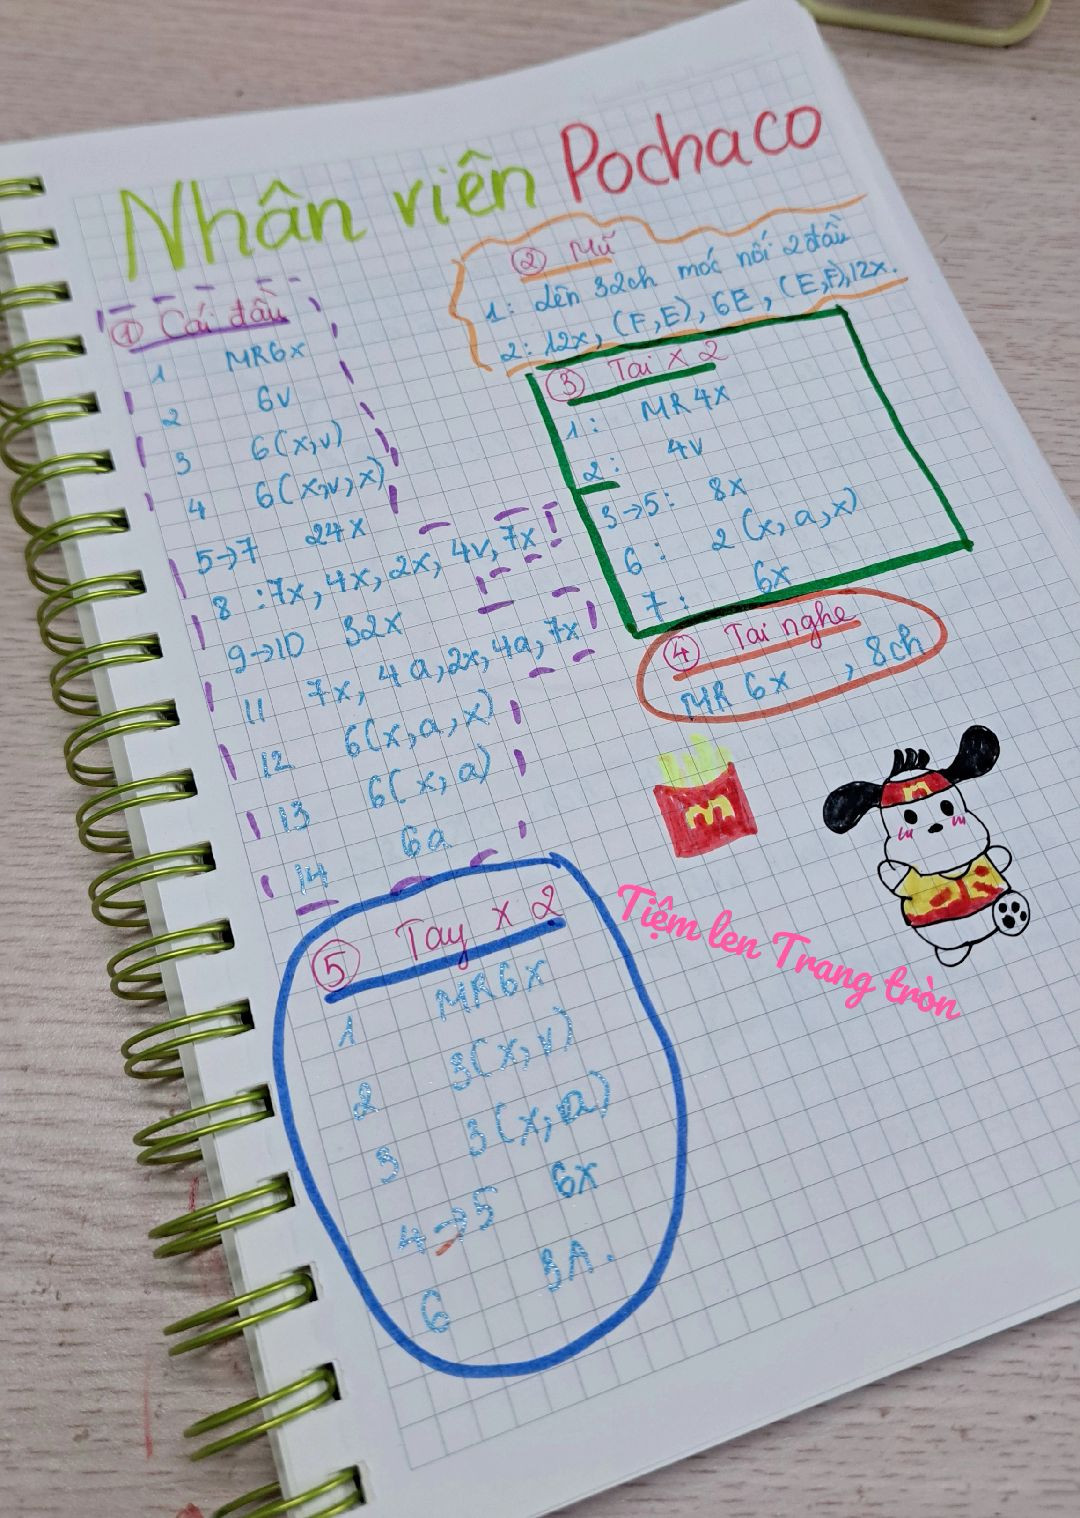 Nhân viên Pochaco
① Cái đầu
1 MR6x
2 6v
3 6(x,v)
4 6(x,v,x)
5→7 24x
8 : 7x, 4x, 2x, 4v, 7x
9→10 32x
11 7x, 4a, 2x, 4a, 7x
12 6(x,a,x)
13 6(x,a)
14 6a
② Mũ
1: lên 32ch móc nối 2 đầu
2: 12x, (F,E), 6E, (E,F), 12x.
③ Tai x 2
1: MR4x
2: 4v
3→5: 8x
6: 2(x,a,x)
7: 6x
④ Tai nghe
MR 6x , 8ch
m
m
Tiệm len Trang tròn
⑤ Tay x 2
1 MR6x
2 3(x,v)
3 3(x,a)
4→5 6x
6